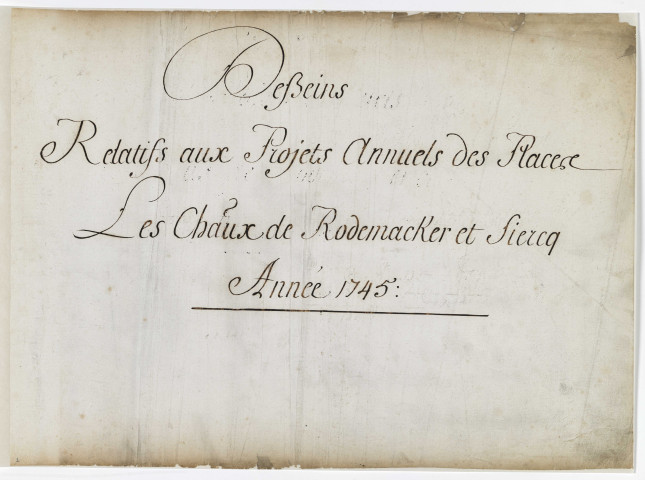 Deßeins
Relatifs aux Projets Annuels des Places
Les Chaûx de Rodemacker et Siercq
Année 1745: